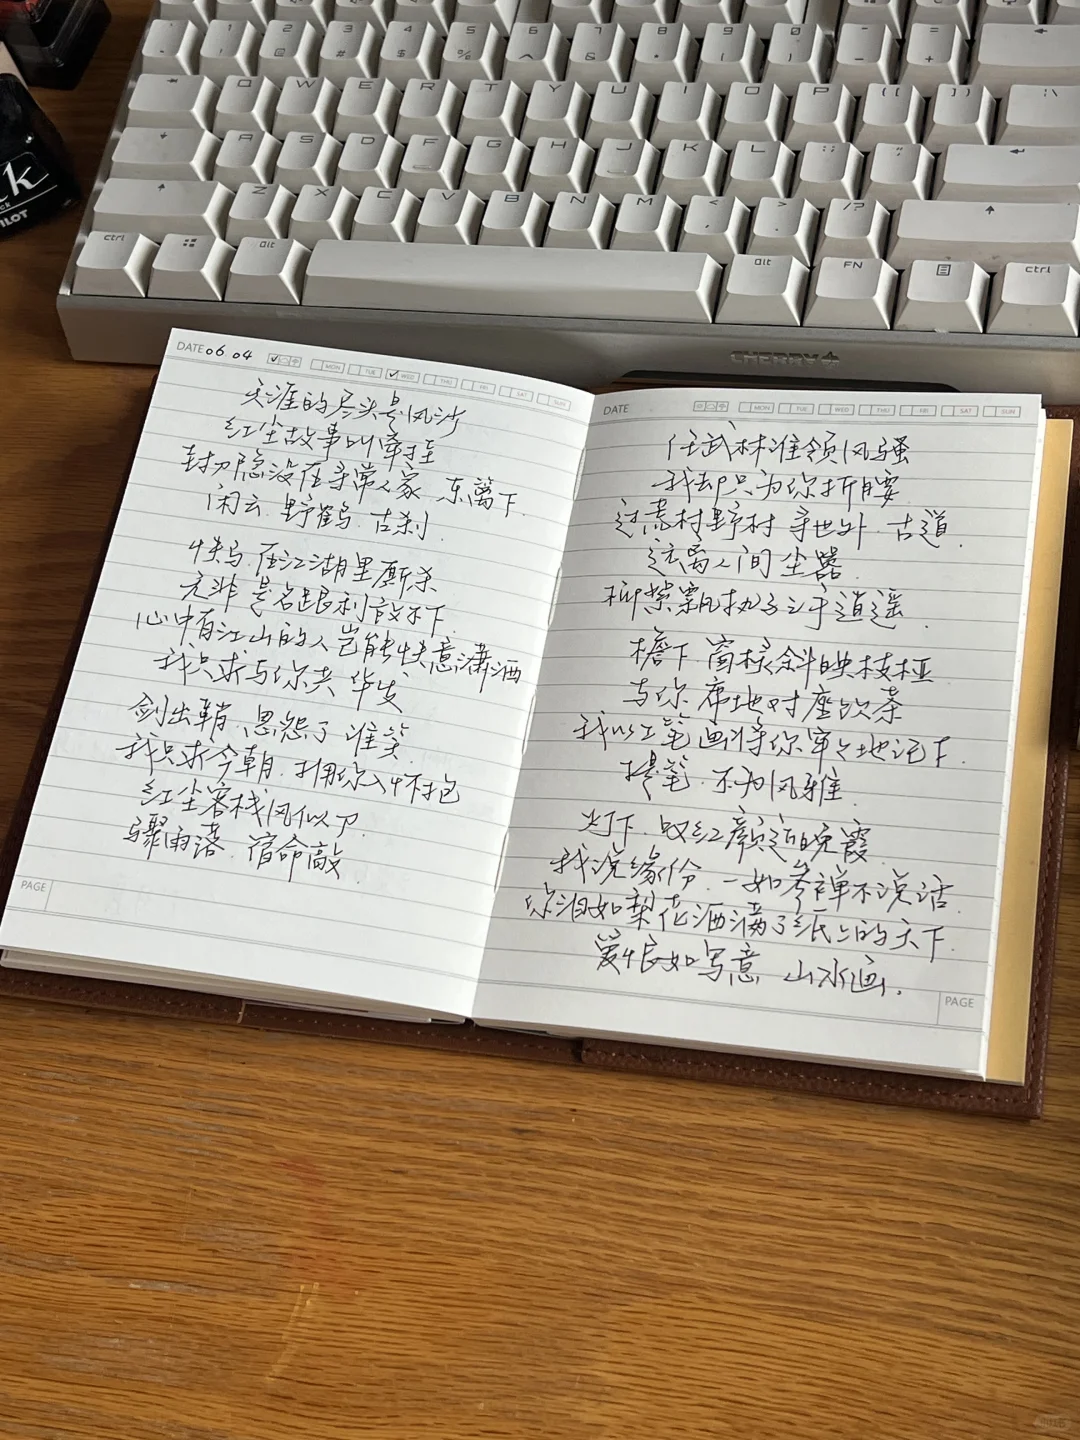 ctrl
alt
alt
FN
ctrl
CHERRY
PILOT
DATE 06 04
MON TUE WED THU FRI SAT SUN
天涯的尽头是风沙
红尘故事叫牵挂
封刀隐没在寻常人家 东篱下
闲云 野鹤 古刹
快马 在江湖里厮杀
无非 是名跟利放不下
心中有江山的人岂能快意潇洒
我只求与你共华发
剑出鞘 恩怨了 谁笑
我只求今朝 拥你入怀抱
红尘客栈风似刀
骤雨落 宿命敲
PAGE
DATE
MON TUE WED THU FRI SAT SUN
任武林谁领风骚
我却只为你折腰
过荒村野村 寻世外 古道
远离人间 尘嚣
柳絮飘执子之手逍遥
檐下 窗棂斜映枝桠
与你 席地对座饮茶
我以工笔画将你牢牢地记下
提笔 不为风雅
灯下 叹红颜近晚霞
我说缘份 一如参禅不说话
你泪如梨花洒满了纸上的天下
爱恨如写意 山水画.
PAGE